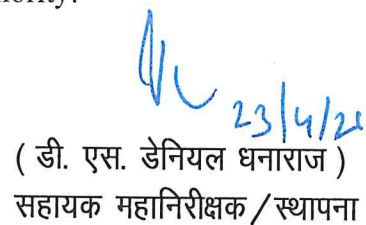 ority.
23/4/2
( डी. एस. डेनियल धनाराज )
सहायक महानिरीक्षक / स्थापना